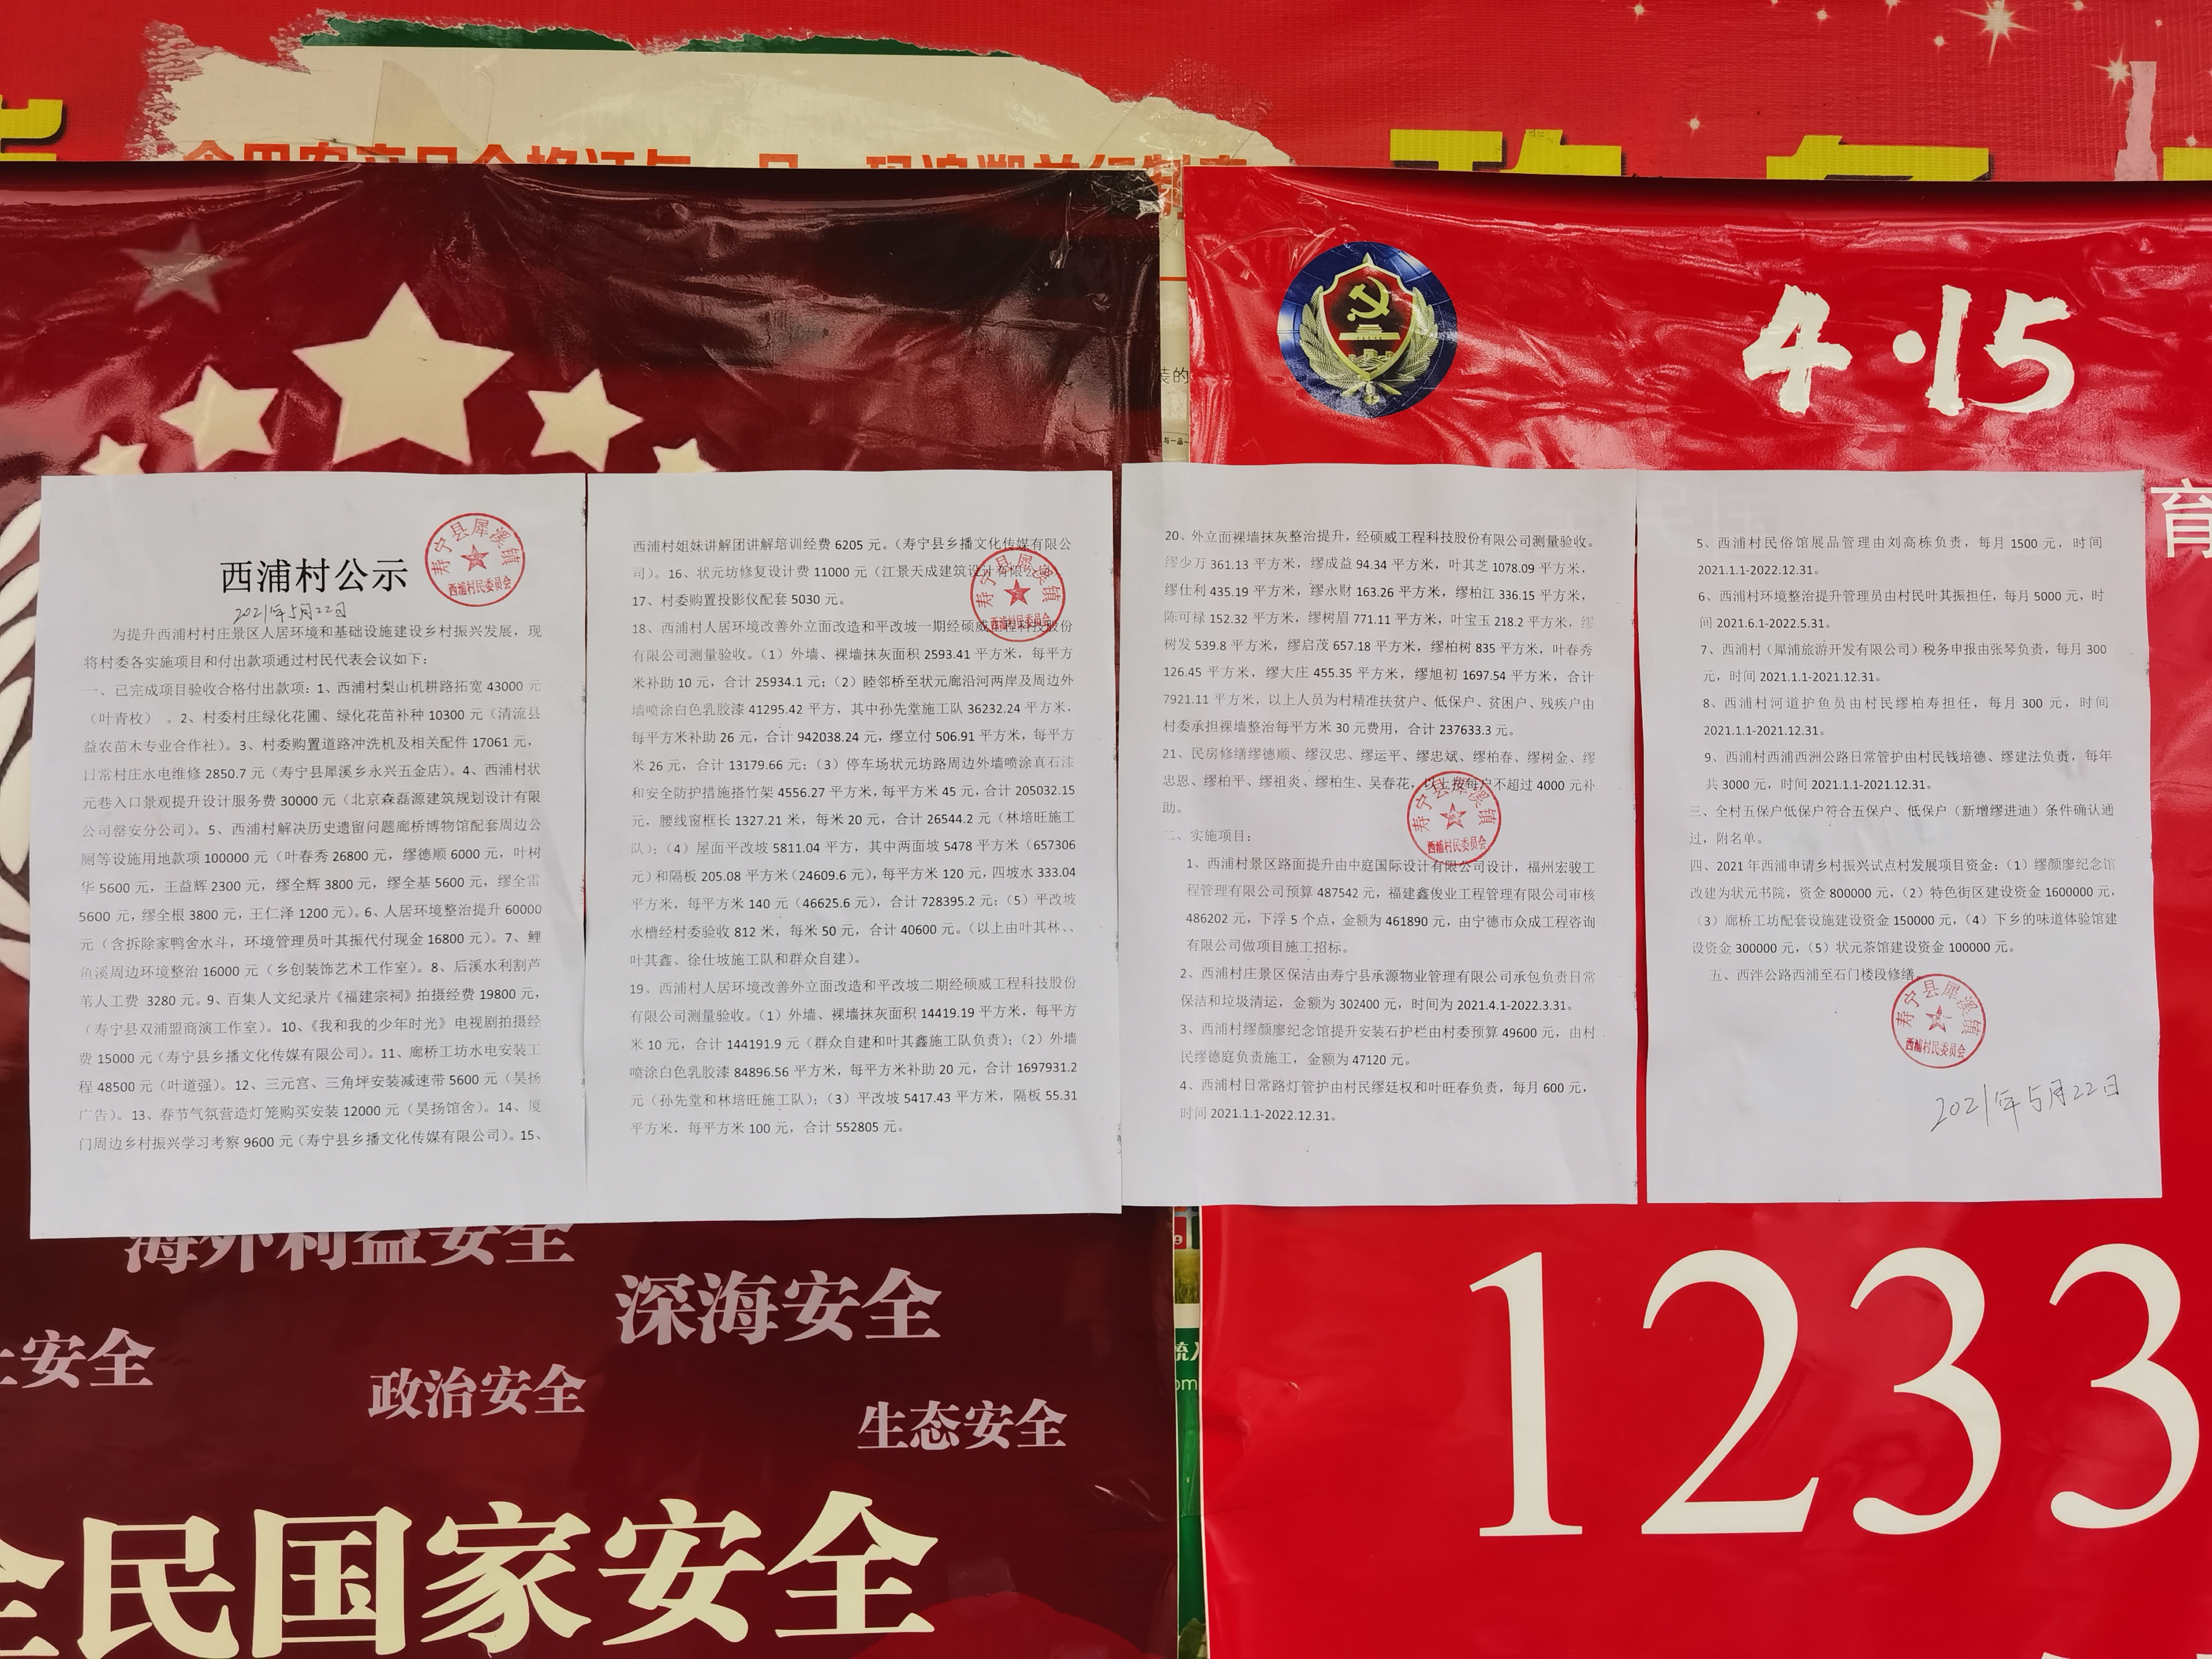 4·15
育
西浦村公示
寿宁县犀溪镇
西浦村民委员会
2021年5月22日
为提升西浦村村庄景区人居环境和基础设施建设乡村振兴发展，现
将村委各实施项目和付出款项通过村民代表会议如下：
一、已完成项目验收合格付出款项：1、西浦村梨山机耕路拓宽 43000 元
（叶青枚） 。2、村委村庄绿化花圃、绿化花苗补种 10300 元（清流县
益农苗木专业合作社）。3、村委购置道路冲洗机及相关配件 17061 元，
日常村庄水电维修 2850.7 元（寿宁县犀溪乡永兴五金店）。4、西浦村状
元巷入口景观提升设计服务费 30000 元（北京森磊源建筑规划设计有限
公司罄安分公司）。5、西浦村解决历史遗留问题廊桥博物馆配套周边公
厕等设施用地款项 100000 元（叶春秀 26800 元，缪德顺 6000 元，叶树
华 5600 元，王益辉 2300 元，缪全辉 3800 元，缪全基 5600 元，缪全雷
5600 元，缪全根 3800 元，王仁泽 1200 元）。6、人居环境整治提升 60000
元（含拆除家鸭舍水斗，环境管理员叶其振代付现金 16800 元）。7、鲤
鱼溪周边环境整治 16000 元（乡创装饰艺术工作室）。8、后溪水利割芦
苇人工费 3280 元。9、百集人文纪录片《福建宗祠》拍摄经费 19800 元，
（寿宁县双浦盟商演工作室）。10、《我和我的少年时光》电视剧拍摄经
费 15000 元（寿宁县乡播文化传媒有限公司）。11、廊桥工坊水电安装工
程 48500 元（叶道强）。12、三元宫、三角坪安装减速带 5600 元（昊扬
广告）。13、春节气氛营造灯笼购买安装 12000 元（昊扬馆舍）。14、厦
门周边乡村振兴学习考察 9600 元（寿宁县乡播文化传媒有限公司）。15、
西浦村姐妹讲解团讲解培训经费 6205 元。（寿宁县乡播文化传媒有限公
司）。16、状元坊修复设计费 11000 元（江景天成建筑设计有限公司）
17、村委购置投影仪配套 5030 元。
寿宁县犀溪镇
西浦村民委员会
18、西浦村人居环境改善外立面改造和平改坡一期经硕威工程科技股份
有限公司测量验收。（1）外墙、裸墙抹灰面积 2593.41 平方米，每平方
米补助 10 元，合计 25934.1 元；（2）睦邻桥至状元廊沿河两岸及周边外
墙喷涂白色乳胶漆 41295.42 平方，其中孙先堂施工队 36232.24 平方米，
每平方米补助 26 元，合计 942038.24 元，缪立付 506.91 平方米，每平方
米 26 元，合计 13179.66 元；（3）停车场状元坊路周边外墙喷涂真石漆
和安全防护措施搭竹架 4556.27 平方米，每平方米 45 元，合计 205032.15
元，腰线窗框长 1327.21 米，每米 20 元，合计 26544.2 元（林培旺施工
队）；（4）屋面平改坡 5811.04 平方，其中两面坡 5478 平方米（657306
元）和隔板 205.08 平方米（24609.6 元），每平方米 120 元，四坡水 333.04
平方米，每平方米 140 元（46625.6 元），合计 728395.2 元；（5）平改坡
水槽经村委验收 812 米，每米 50 元，合计 40600 元。（以上由叶其林、、
叶其鑫、徐仕坡施工队和群众自建）。
19、西浦村人居环境改善外立面改造和平改坡二期经硕威工程科技股份
有限公司测量验收。（1）外墙、裸墙抹灰面积 14419.19 平方米，每平方
米 10 元，合计 144191.9 元（群众自建和叶其鑫施工队负责）；（2）外墙
喷涂白色乳胶漆 84896.56 平方米，每平方米补助 20 元，合计 1697931.2
元（孙先堂和林培旺施工队）；（3）平改坡 5417.43 平方米，隔板 55.31
平方米，每平方米 100 元，合计 552805 元。
20、外立面裸墙抹灰整治提升，经硕威工程科技股份有限公司测量验收。
缪少万 361.13 平方米，缪成益 94.34 平方米，叶其芝 1078.09 平方米，
缪仕利 435.19 平方米，缪永财 163.26 平方米，缪柏江 336.15 平方米，
陈可禄 152.32 平方米，缪树眉 771.11 平方米，叶宝玉 218.2 平方米，缪
树发 539.8 平方米，缪启茂 657.18 平方米，缪柏树 835 平方米，叶春秀
126.45 平方米，缪大庄 455.35 平方米，缪旭初 1697.54 平方米，合计
7921.11 平方米，以上人员为村精准扶贫户、低保户、贫困户、残疾户由
村委承担裸墙整治每平方米 30 元费用，合计 237633.3 元。
21、民房修缮缪德顺、缪汉忠、缪运平、缪忠斌、缪柏春、缪树金、缪
忠恩、缪柏平、缪祖炎、缪柏生、吴春花，以上按每户不超过 4000 元补
助。
寿宁县犀溪镇
西浦村民委员会
二、实施项目：
1、西浦村景区路面提升由中庭国际设计有限公司设计，福州宏骏工
程管理有限公司预算 487542 元，福建鑫俊业工程管理有限公司审核
486202 元，下浮 5 个点，金额为 461890 元，由宁德市众成工程咨询
有限公司做项目施工招标。
2、西浦村庄景区保洁由寿宁县承源物业管理有限公司承包负责日常
保洁和垃圾清运，金额为 302400 元，时间为 2021.4.1-2022.3.31。
3、西浦村缪颜廖纪念馆提升安装石护栏由村委预算 49600 元，由村
民缪德庭负责施工，金额为 47120 元。
4、西浦村日常路灯管护由村民缪廷权和叶旺春负责，每月 600 元，
时间 2021.1.1-2022.12.31。
5、西浦村民俗馆展品管理由刘高栋负责，每月 1500 元，时间
2021.1.1-2022.12.31。
6、西浦村环境整治提升管理员由村民叶其振担任，每月 5000 元，时
间 2021.6.1-2022.5.31。
7、西浦村（犀浦旅游开发有限公司）税务申报由张琴负责，每月 300
元，时间 2021.1.1-2021.12.31。
8、西浦村河道护鱼员由村民缪柏寿担任，每月 300 元，时间
2021.1.1-2021.12.31。
9、西浦村西浦西洲公路日常管护由村民钱培德、缪建法负责，每年
共 3000 元，时间 2021.1.1-2021.12.31。
三、全村五保户低保户符合五保户、低保户（新增缪进迪）条件确认通
过，附名单。
四、2021 年西浦申请乡村振兴试点村发展项目资金：（1）缪颜廖纪念馆
改建为状元书院，资金 800000 元，（2）特色街区建设资金 1600000 元，
（3）廊桥工坊配套设施建设资金 150000 元，（4）下乡的味道体验馆建
设资金 300000 元，（5）状元茶馆建设资金 100000 元。
五、西泮公路西浦至石门楼段修缮。
寿宁县犀溪镇
西浦村民委员会
2021年5月22日
海外利益安全
深海安全
安全
政治安全
生态安全
全民国家安全
1233